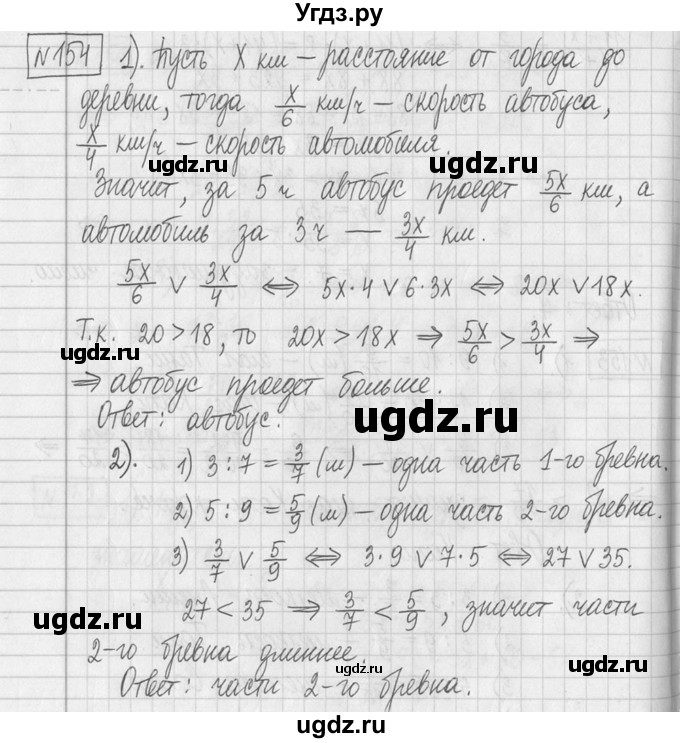 Угдз.ру
№154 1). Пусть X км – расстояние от города до
деревни, тогда x/6 км/ч – скорость автобуса,
x/4 км/ч – скорость автомобиля.
ugdz.ru ugdz.ru
Значит, за 5 ч автобус проедет 5x/6 км, а
автомобиль за 3ч — 3x/4 км.
5x/6 ∨ 3x/4 ⇔ 5x·4 ∨ 6·3x ⇔ 20x ∨ 18x.
Т.к. 20>18, то 20x > 18x ⇒ 5x/6 > 3x/4 ⇒
ugdz.ru
⇒ автобус проедет больше.
Ответ: автобус.
ugdz.ru
2). 1) 3:7 = 3/7 (м) – одна часть 1-го бревна.
ugdz.ru
2) 5:9 = 5/9 (м) – одна часть 2-го бревна.
3) 3/7 ∨ 5/9 ⇔ 3·9 ∨ 7·5 ⇔ 27 ∨ 35.
ugdz.ru
27 < 35 ⇒ 3/7 < 5/9, значит части
2-го бревна длиннее.
ugdz.ru
Ответ: части 2-го бревна.
ugdz.ru